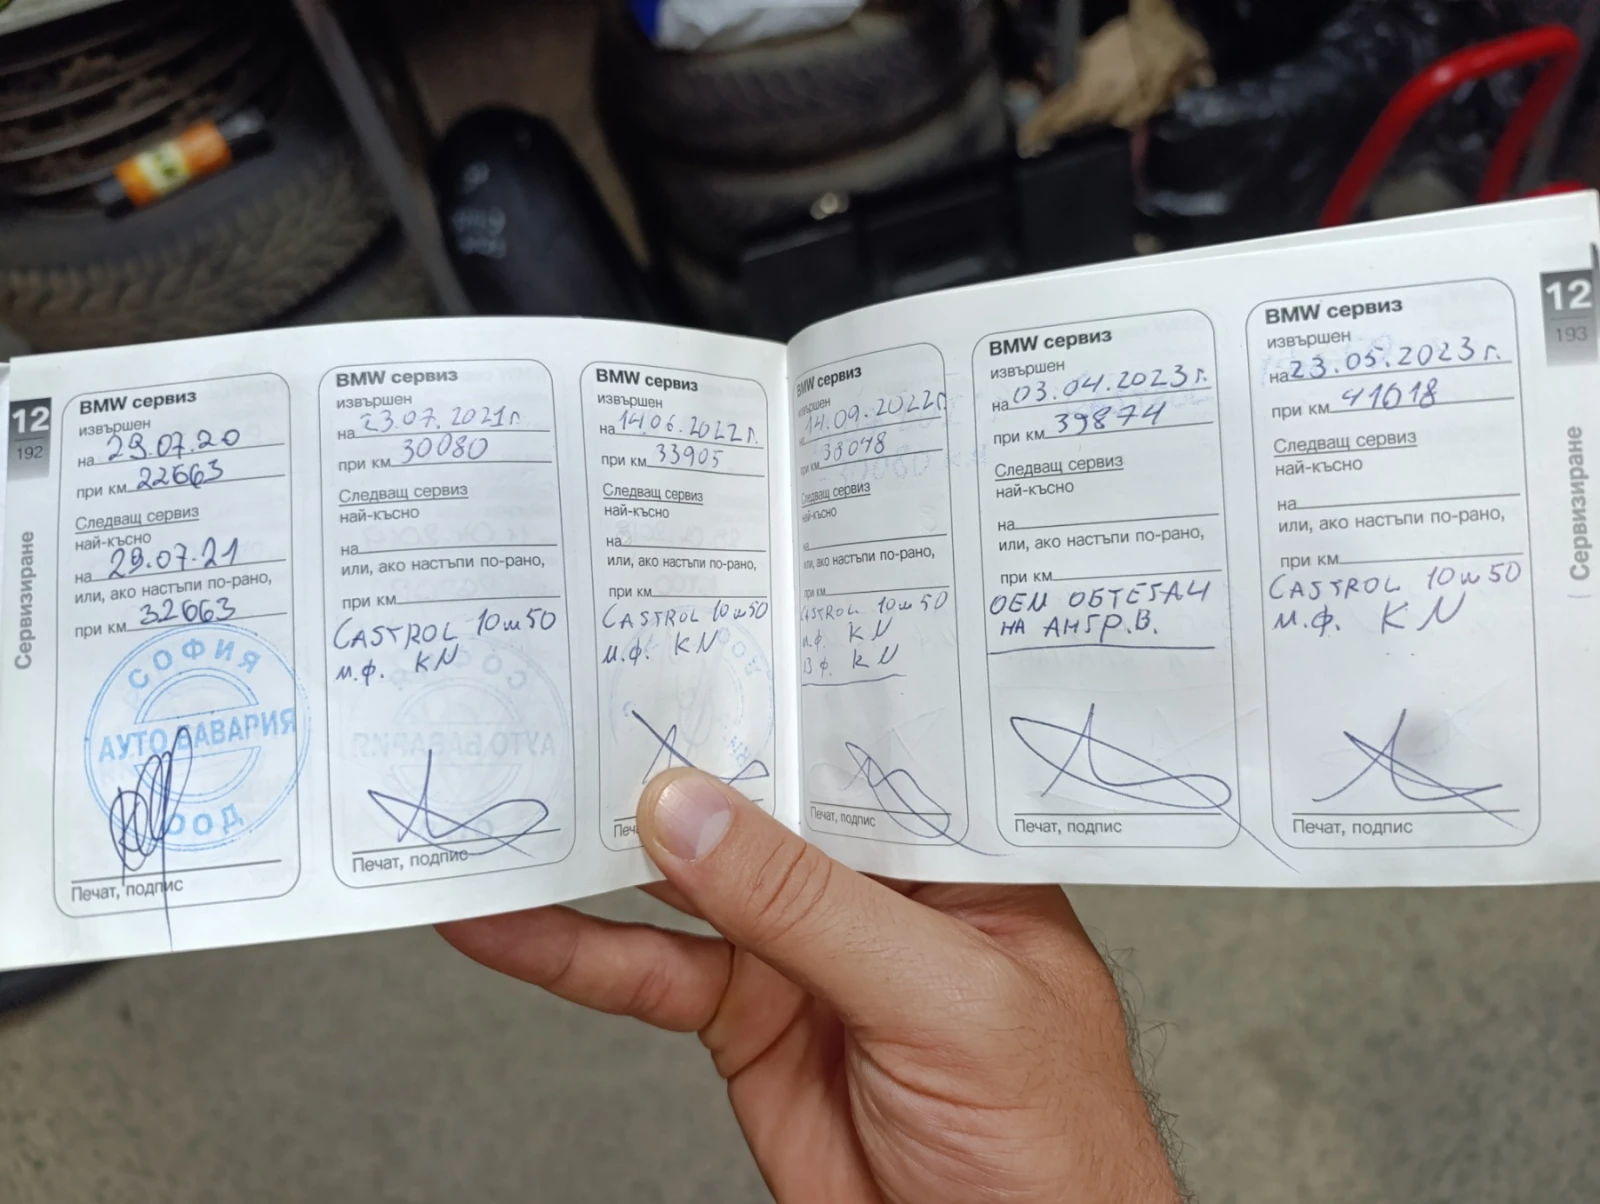 12
192
Сервизиране
BMW сервиз
извършен
на 29.07.20
при км 22663
Следващ сервиз
най-късно
на 29.07.21
или, ако настъпи по-рано,
при км 32663
СОФИЯ
АУТО БАВАРИЯ
ООД
Печат, подпис
BMW сервиз
извършен
на 23.07.2021г.
при км 30080
Следващ сервиз
най-късно
на
или, ако настъпи по-рано,
при км
CASTROL 10w50
м.ф. KN
Печат, подпис
BMW сервиз
извършен
на 14.06.2022г.
при км 33905
Следващ сервиз
най-късно
на
или, ако настъпи по-рано,
при км
CASTROL 10w50
м.ф. KN
BMW сервиз
извършен
14.09.2022г.
при км 38048
Следващ сервиз
най-късно
на
или, ако настъпи по-рано,
при км
CASTROL 10w50
м.ф. KN
В.ф. KN
Печат, подпис
BMW сервиз
извършен
на 03.04.2023г.
при км 39874
Следващ сервиз
най-късно
на
или, ако настъпи по-рано,
при км
ОЕМ ОБТЕГАЧ
НА АНГР.В.
Печат, подпис
BMW сервиз
извършен
на 23.05.2023г.
при км 41618
Следващ сервиз
най-късно
на
или, ако настъпи по-рано,
при км
CASTROL 10w50
м.ф. KN
Печат, подпис
12
193
Сервизиране